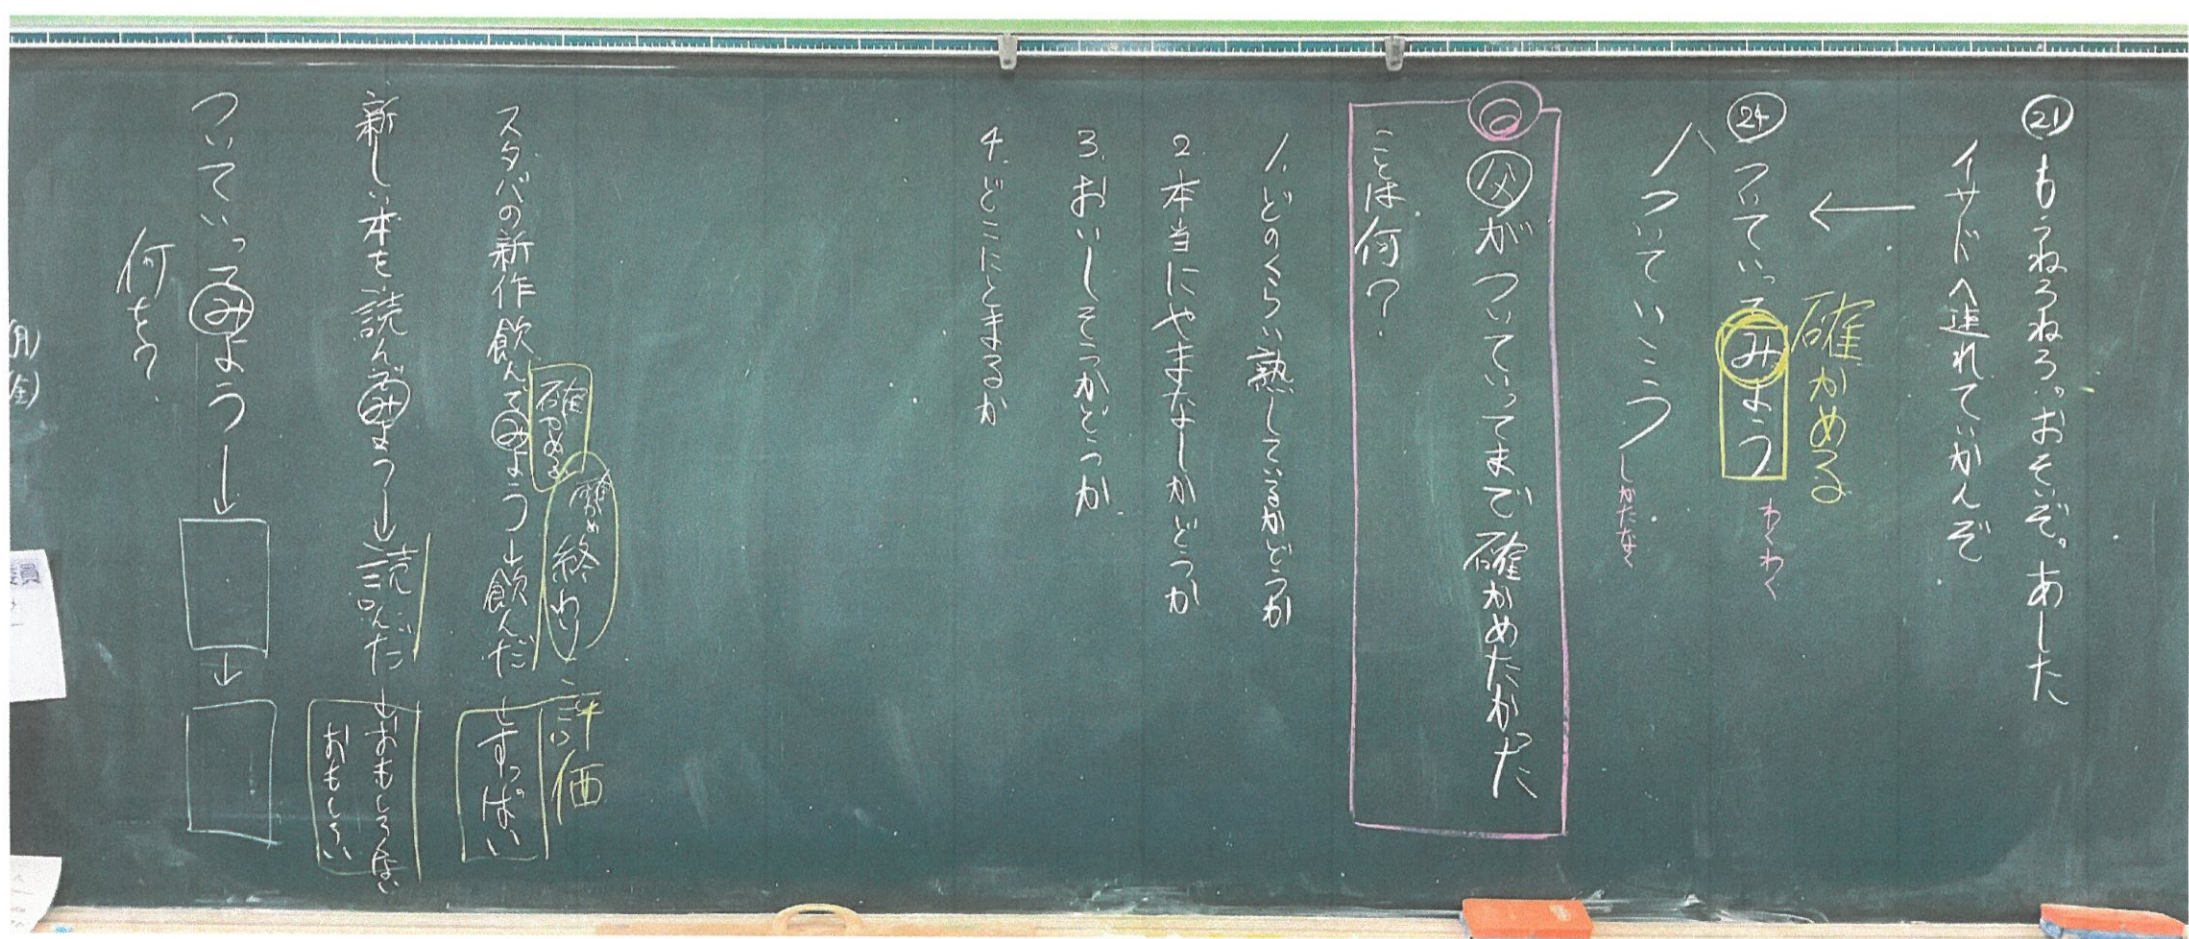 ㉑ もうねろねろ。おそいぞ。あした
イサドへ連れていかんぞ
←
確かめる
㉔ ついていってみよう
わくわく
ついていこう
しかたなく
◎ 父がついていってまで確かめたかった
ことは何?
1. どのくらい熟しているかどうか
2. 本当にやまなしかどうか
3. おいしそうかどうか
4. どこにとまるか
確かめる
確かめ終わり
評価
スタバの新作飲んでみよう→飲んだ→すっぱい
新しい本を読んでみよう→読んだ→おもしろくない
おもしろい
ついていってみよう→□→□
何を?
(月)
(金)
員